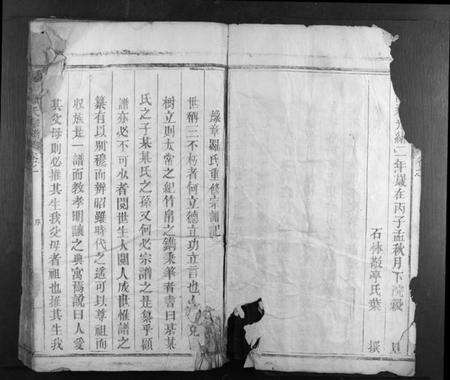 二年歲在丙子孟秋月下浣穀
石林敬亭氏葉 撰
豫章羅氏重修宗譜記
世稱三不朽者何立德立功立言也
樹立則太常之紀竹帛之鐫秉筆者書曰某某
氏之子某某氏之孫又何必宗譜之是集乎顧
譜亦必不可少者閱世生人閱人成世惟譜之
纂有以別禮而辨昭雖時代之遙可以尊祖而
收族是一譜而教孝明讓之典寓焉說曰人愛
其父母則必推其生我父母者祖也推其生我
序